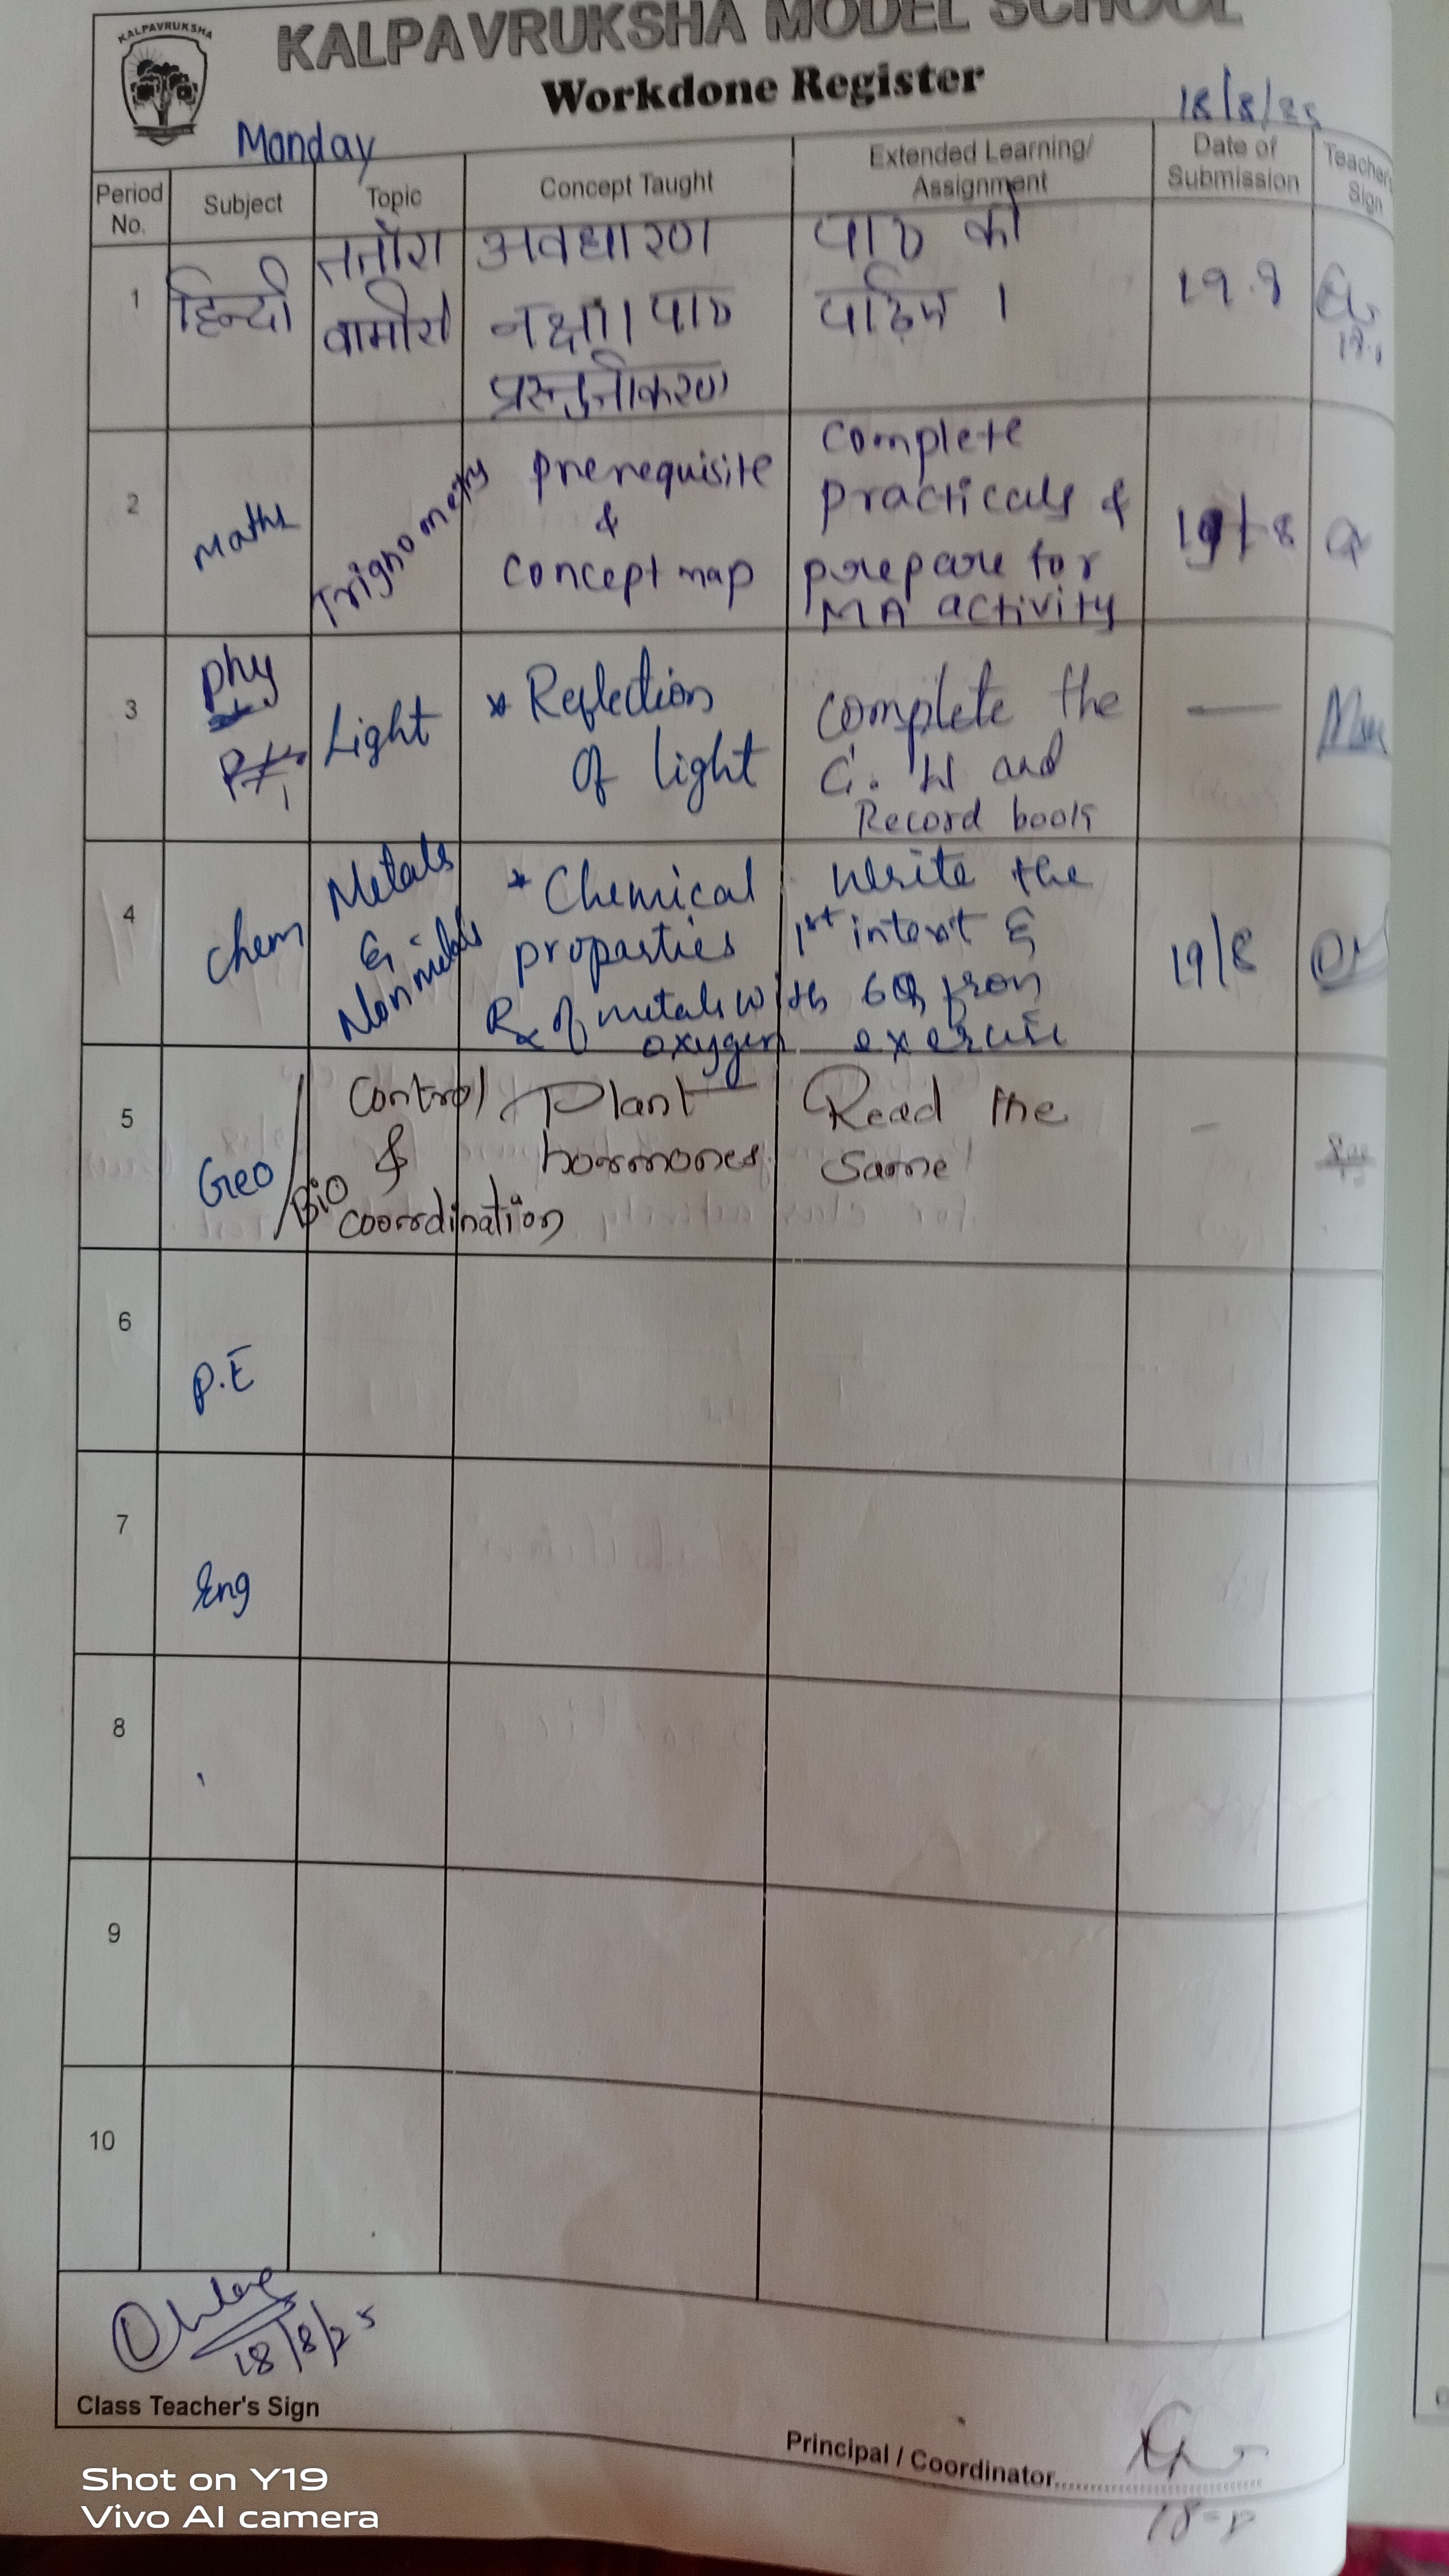 KALPAVRUKSHA
KALPAVRUKSHA MODEL SCHOOL
Workdone Register
Monday
18/8/25
Period No.
Subject
Topic
Concept Taught
Extended Learning/
Assignment
Date of
Submission
Teacher's
Sign
1
हिन्दी
तताँरा
वामीरो
अवधारणा
नक्षा। पाठ
प्रस्तुतीकरण
पाठ को
पढ़िए ।
19.8
18.8
2
Maths
Trignometry
prerequisite
&
Concept map
complete
practicals &
prepare for
MA activity
19/8
3
phy
Light
* Reflection
of light
complete the
C. W and
Record book
—
4
Chem
Metals
&
Nonmetals
* Chemical
properties
Rx of metals with
oxygen
Write the
1st intext &
6Q from
exercise
19/8
5
Geo/Bio
Control
&
coordination
Plant
hormones
Read the
same
-
6
P.E
7
Eng
8
9
10
18/8/25
Class Teacher's Sign
Principal / Coordinator
18-8
Shot on Y19
Vivo AI camera